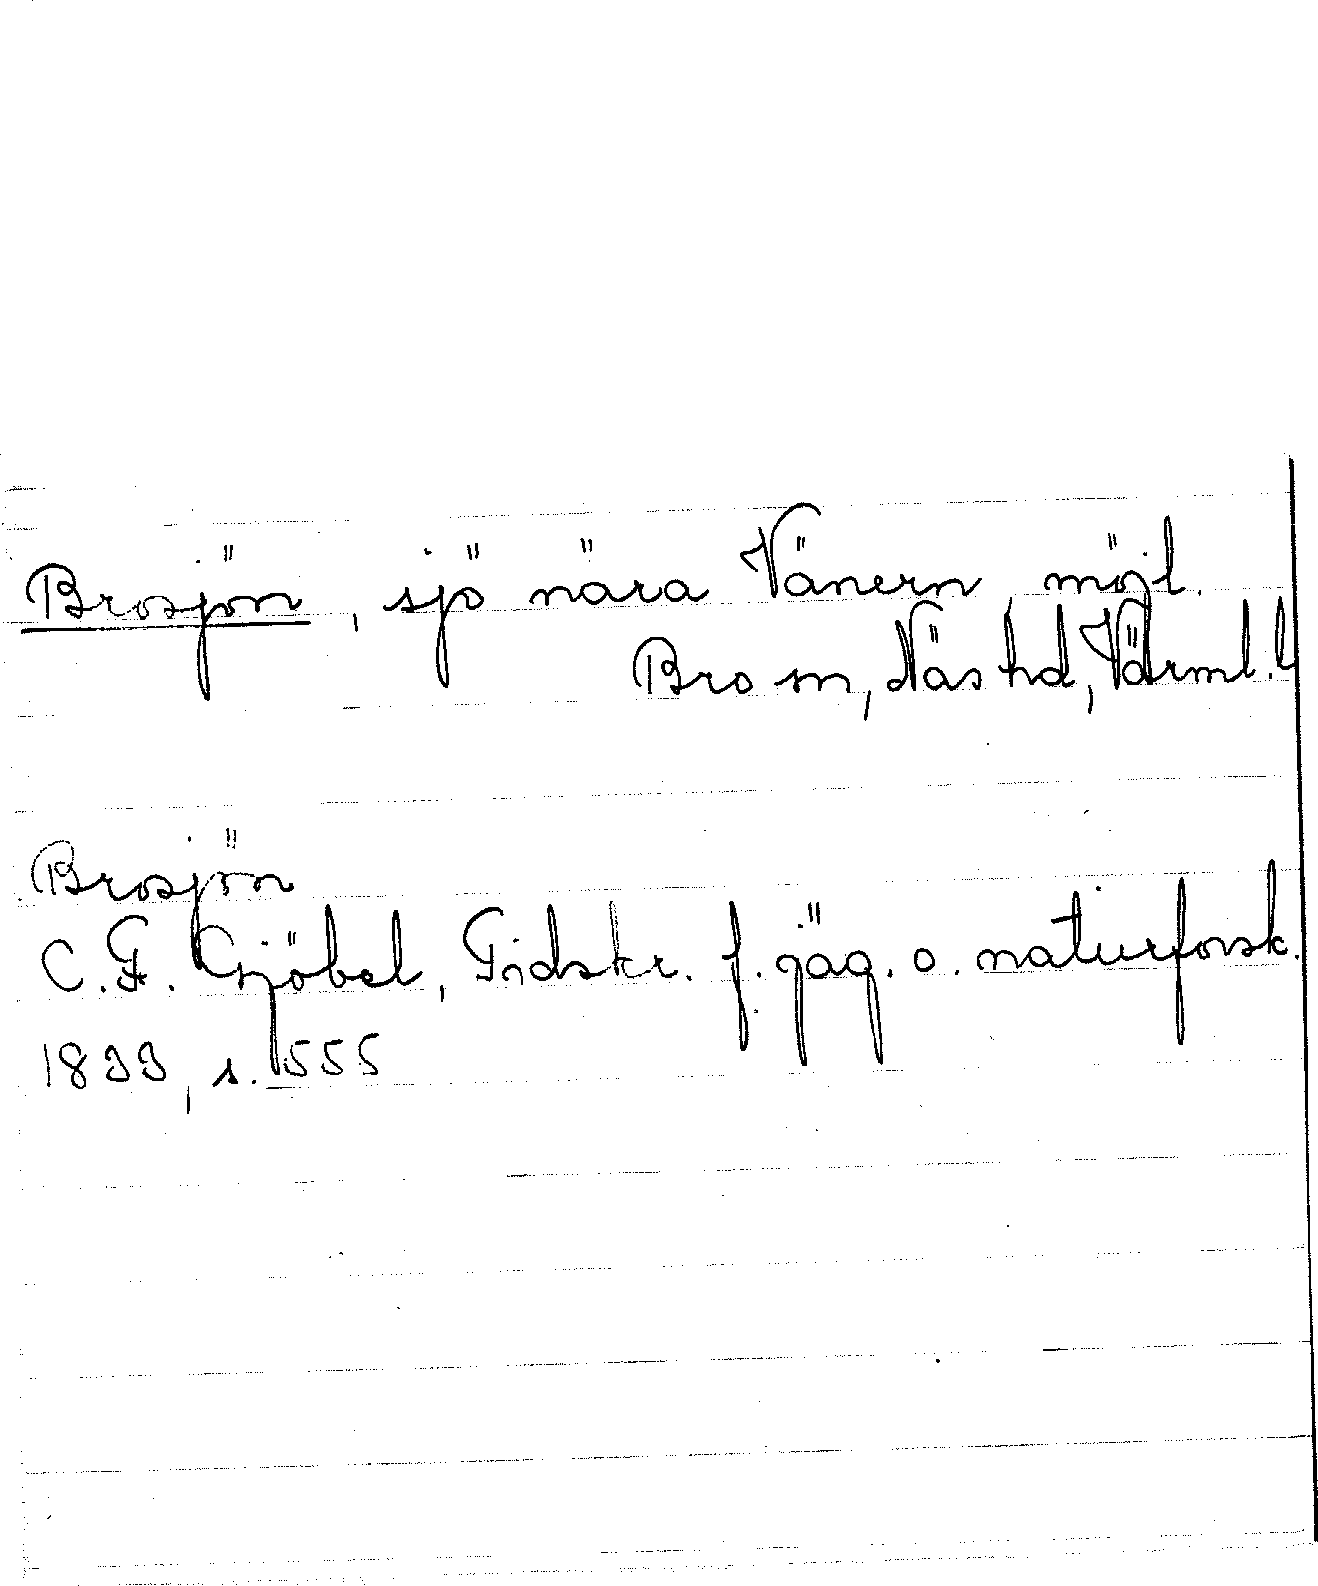 Brosjön, sjö nära Vänern, möjl.
Bro sn, Näs hd, Värml. l
Brosjön
C. F. Gjöbel, Tidskr. f. jäg. o. naturforsk.
1833, s. 555